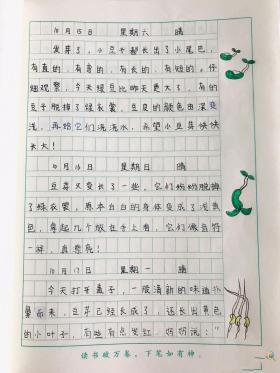 10月15日 星期六 晴
发芽了，小豆子都长出了小尾巴，
有直的，有弯的，有长的，有短的。仔
细观察，今天绿豆比昨天更大了，有的
豆子脱掉了绿衣裳，豆皮的颜色由深变
浅。再给它们洗洗水，希望小豆芽快快
长大！
10月16日 星期日 晴
豆芽又变长了一些，它们纷纷脱掉
了绿衣裳，原本白白的身体变成了浅黄
色，拿起几个放在手上看，它们像音符
一样，真漂亮！
10月17日 星期一 晴
今天打开盖子，一股清新的味道扑
鼻而来，豆芽已经长成了，还长出黄色
的小叶子，有些有点发红，奶奶说：“
读书破万卷，下笔如有神。